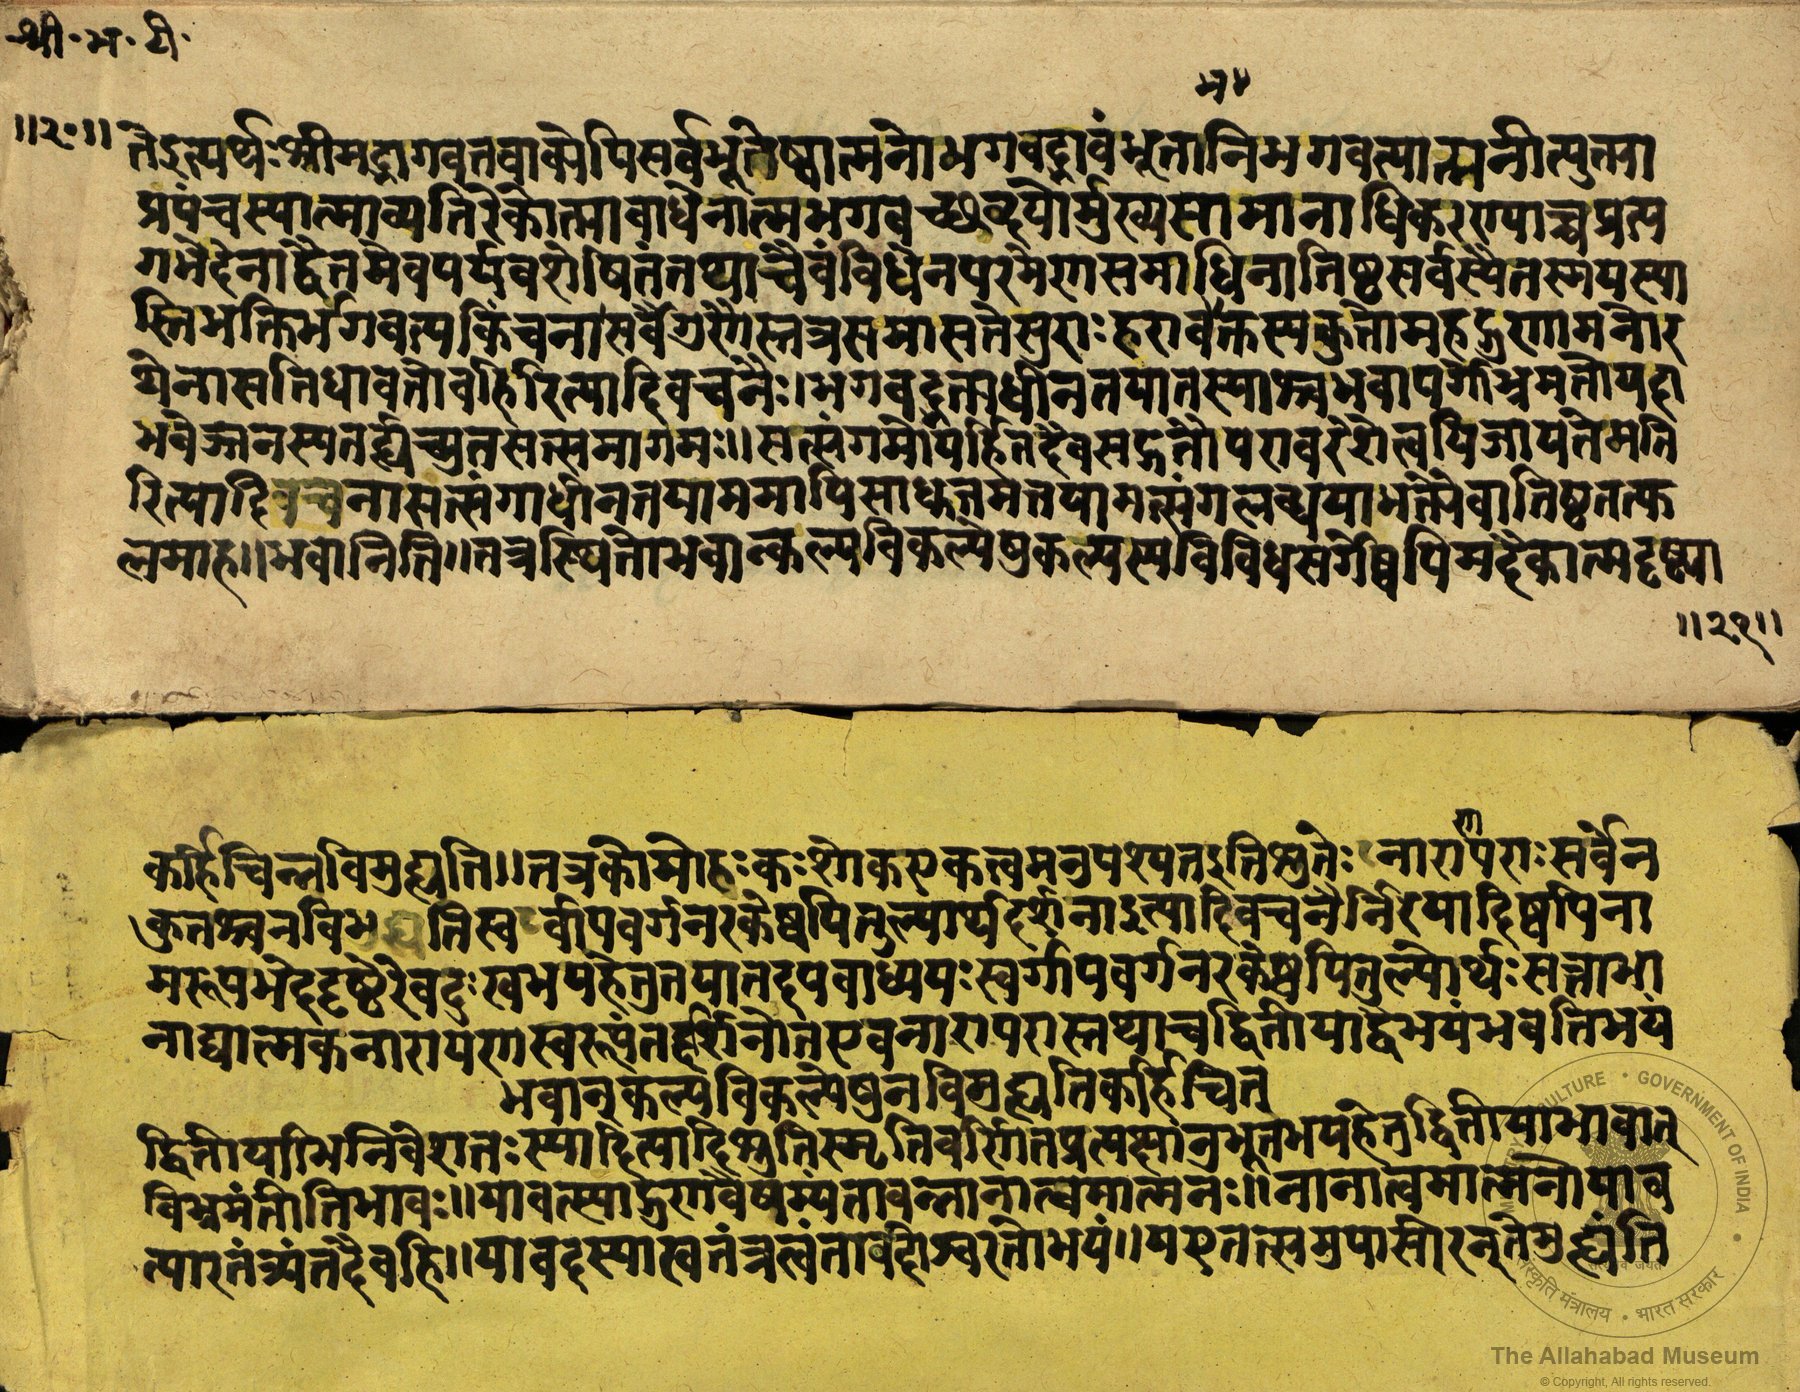 श्री.भ.टी.
म४
॥२०॥ तेऽत्पर्थः श्रीमद्भागवतवाक्येपिसर्वभूतेष्वात्मनोभगवद्भावंभूतानिभगवत्यात्मनीत्युत्क्वा
प्रपंचस्यात्माव्यतिरेकोत्त्यावाधेनात्मभगवच्छब्दयोर्मुख्यसामानाधिकरण्याच्चप्रत्य
गभेदेनाद्वैतमेवपर्यवशेषितंतथाचैवंविधेनपरमेणसमाधिनातिष्ठसर्वस्यैतस्मयस्या
स्तिभक्तिर्भगवत्यकिंचनासर्वैर्गुणैस्तत्रसमासतेसुराः हरावभक्तस्यकुतोमहद्गुणामनोर
थेनासतिधावतोबहिरित्यादिवचनैः।भगवद्भक्त्यधीनतयातस्याश्चभवापवर्गोभ्रमतोयदा
भवेज्जनस्यतर्ह्यच्युतसत्समागमः॥सत्संगमोयर्हितदैवसद्गतौपरावरेशेत्वयिजायतेमति
रित्यादिवचनासत्संगाधीनतयाममापिसाधुत्तमतयामत्संगलब्धयाभक्त्यैवातिष्ठतत्फ
लमाह॥भवानिति॥तत्रस्थितोभवान्कल्पविकल्पेषुकल्पस्यविविधसर्गेष्वपिमदेकात्मदृष्ट्या
॥२१॥
कर्हिचिन्नविमुह्यति॥तत्रकोमोहःकःशोकएकत्वमनुपश्यतइतिश्रुतेः नारापराःसर्वेन
ण
कुतश्चनविभ्यतिस्वर्वापवर्गनरकेष्वपितुल्यार्थदर्शिनाइत्यादिवचनैर्निरयादिष्वपिना
मरूपभेददृष्टेरेवदुःखभयहेतुतयातदपवाध्ययःस्वर्गापवर्गनरकेष्वपितुल्योर्थःसत्ताभा
नाद्यात्मकनारायणस्वरूपंतद्दर्शिनोतएवनारापरास्तथाचद्वितीयाद्वैभयंभवतिभयं
भवान्कल्पविकल्पेषुनविमुह्यतिकर्हिचित्
द्वितीयाभिनिवेशतःस्यादित्यादिश्रुतिस्मृतिवर्णितप्रत्यक्षानुभूतभयहेतुद्वितीयाभावात्
विभ्रमंतीतिभावः॥यावत्स्याद्गुणवैषम्यंतावन्नानात्वमात्मनः॥नानात्वमात्मनोयाव
त्पारतंत्र्यंतदैवहि॥यावदस्यास्वतंत्रत्वंतावदीश्वरतोभयं॥यएतत्समुपासीरन्तेमुह्यंति
The Allahabad Museum
© Copyright, All rights reserved.